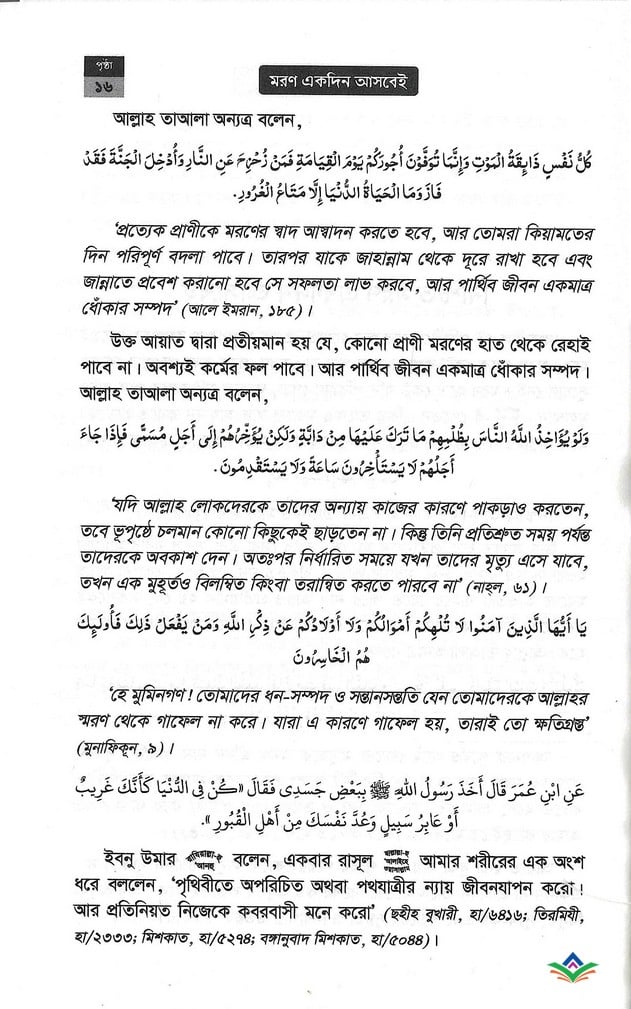 পৃষ্ঠা
১৬
মরণ একদিন আসবেই
আল্লাহ তাআলা অন্যত্র বলেন,
كُلُّ نَفْسٍ ذَائِقَةُ الْمَوْتِ وَإِنَّمَا تُوَفَّوْنَ أُجُورَكُمْ يَوْمَ الْقِيَامَةِ فَمَنْ زُحْزِحَ عَنِ النَّارِ وَأُدْخِلَ الْجَنَّةَ فَقَدْ
فَازَ وَمَا الْحَيَاةُ الدُّنْيَا إِلَّا مَتَاعُ الْغُرُورِ.
‘প্রত্যেক প্রাণীকে মরণের স্বাদ আস্বাদন করতে হবে, আর তোমরা কিয়ামতের
দিন পরিপূর্ণ বদলা পাবে। তারপর যাকে জাহান্নাম থেকে দূরে রাখা হবে এবং
জান্নাতে প্রবেশ করানো হবে সে সফলতা লাভ করবে, আর পার্থিব জীবন একমাত্র
ধোঁকার সম্পদ’ (আলে ইমরান, ১৮৫)।
উক্ত আয়াত দ্বারা প্রতীয়মান হয় যে, কোনো প্রাণী মরণের হাত থেকে রেহাই
পাবে না। অবশ্যই কর্মের ফল পাবে। আর পার্থিব জীবন একমাত্র ধোঁকার সম্পদ।
আল্লাহ তাআলা অন্যত্র বলেন,
وَلَوْ يُؤَاخِذُ اللَّهُ النَّاسَ بِظُلْمِهِمْ مَا تَرَكَ عَلَيْهَا مِنْ دَابَّةٍ وَلَكِنْ يُؤَخِّرُهُمْ إِلَى أَجَلٍ مُسَمًّى فَإِذَا جَاءَ
أَجَلُهُمْ لَا يَسْتَأْخِرُونَ سَاعَةً وَلَا يَسْتَقْدِمُونَ.
‘যদি আল্লাহ লোকদেরকে তাদের অন্যায় কাজের কারণে পাকড়াও করতেন,
তবে ভূপৃষ্ঠে চলমান কোনো কিছুকেই ছাড়তেন না। কিন্তু তিনি প্রতিশ্রুত সময় পর্যন্ত
তাদেরকে অবকাশ দেন। অতঃপর নির্ধারিত সময়ে যখন তাদের মৃত্যু এসে যাবে,
তখন এক মুহূর্তও বিলম্বিত কিংবা তরান্বিত করতে পারবে না’ (নাহ্ল, ৬১)।
يَا أَيُّهَا الَّذِينَ آمَنُوا لَا تُلْهِكُمْ أَمْوَالُكُمْ وَلَا أَوْلَادُكُمْ عَنْ ذِكْرِ اللَّهِ وَمَنْ يَفْعَلْ ذَلِكَ فَأُولَئِكَ
هُمُ الْخَاسِرُونَ
‘হে মুমিনগণ! তোমাদের ধন-সম্পদ ও সন্তানসন্ততি যেন তোমাদেরকে আল্লাহর
স্মরণ থেকে গাফেল না করে। যারা এ কারণে গাফেল হয়, তারাই তো ক্ষতিগ্রস্ত’
(মুনাফিকূন, ৯)।
عَنِ ابْنِ عُمَرَ قَالَ أَخَذَ رَسُولُ اللهِ ﷺ بِبَعْضِ جَسَدِى فَقَالَ «كُنْ فِى الدُّنْيَا كَأَنَّكَ غَرِيبٌ
أَوْ عَابِرُ سَبِيلٍ وَعُدَّ نَفْسَكَ مِنْ أَهْلِ الْقُبُورِ».
ইবনু উমার রাযিয়াল্লা-হু আনহু বলেন, একবার রাসূল ছাল্লাল্লা-হু আলাইহে ওয়াসাল্লাম আমার শরীরের এক অংশ
ধরে বললেন, ‘পৃথিবীতে অপরিচিত অথবা পথযাত্রীর ন্যায় জীবনযাপন করো!
আর প্রতিনিয়ত নিজেকে কবরবাসী মনে করো’ (ছহীহ বুখারী, হা/৬৪১৬; তিরমিযী,
হা/২৩৩৩; মিশকাত, হা/৫২৭৪; বঙ্গানুবাদ মিশকাত, হা/৫০৪৪)।